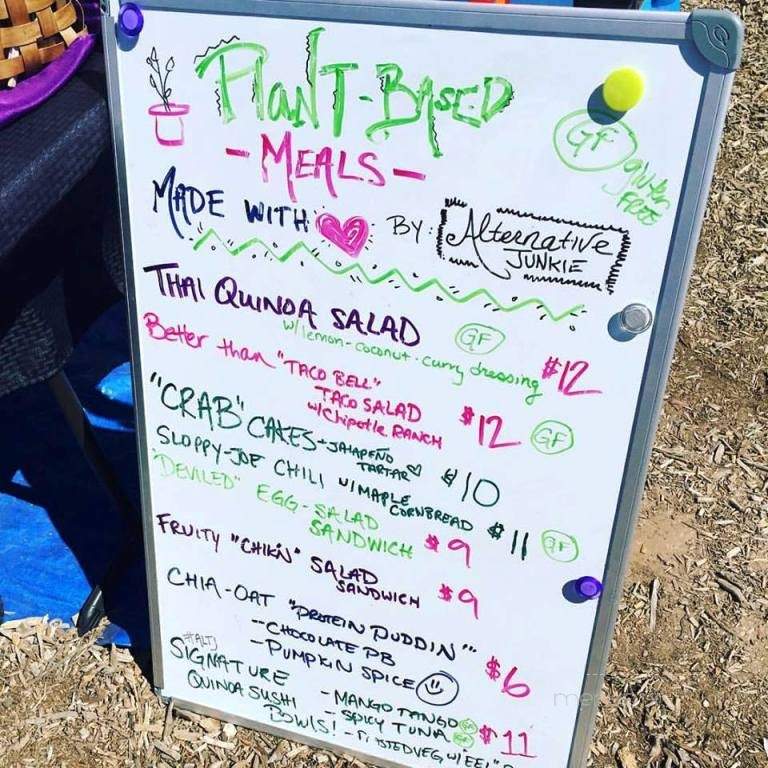 PLANT-BASED
-MEALS-
GF gluten
FREE
MADE WITH BY: Alternative
JUNKIE
THAI QUINOA SALAD GF
w/lemon-coconut-curry dressing $12
Better than "TACO BELL"
TACO SALAD
w/Chipotle RANCH $12 GF
"CRAB" CAKES + JALAPEÑO
TARTAR $10
SLOPPY-JOE CHILI W/MAPLE
CORNBREAD $11 GF
"DEVILED" EGG-SALAD
SANDWICH $9
FRUITY "CHIK'N" SALAD
SANDWICH $9
CHIA-OAT "PROTEIN PUDDIN'"
--CHOCOLATE PB
-PUMPKIN SPICE $6
#ALTJ
SIGNATURE
QUINOA SUSHI
BOWLS!
-MANGO TANGO GF
-SPICY TUNA GF $11